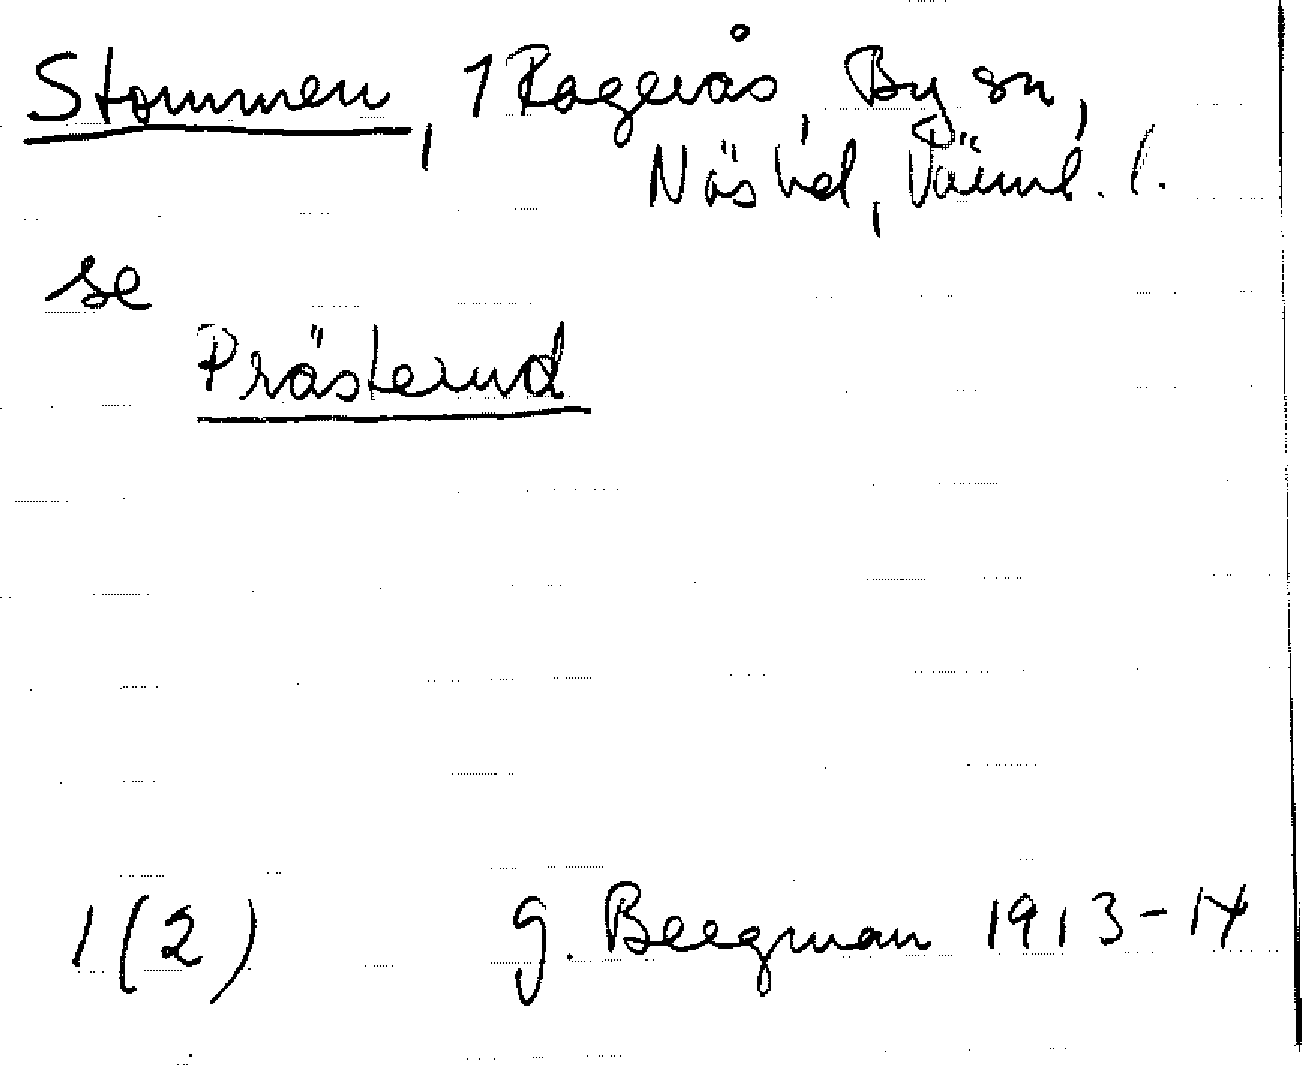 Stommen, 1 Ragerås, By sn,
Näs hd, Värml. l.
se
Prästerud
1(2) G. Bergman 1913-14